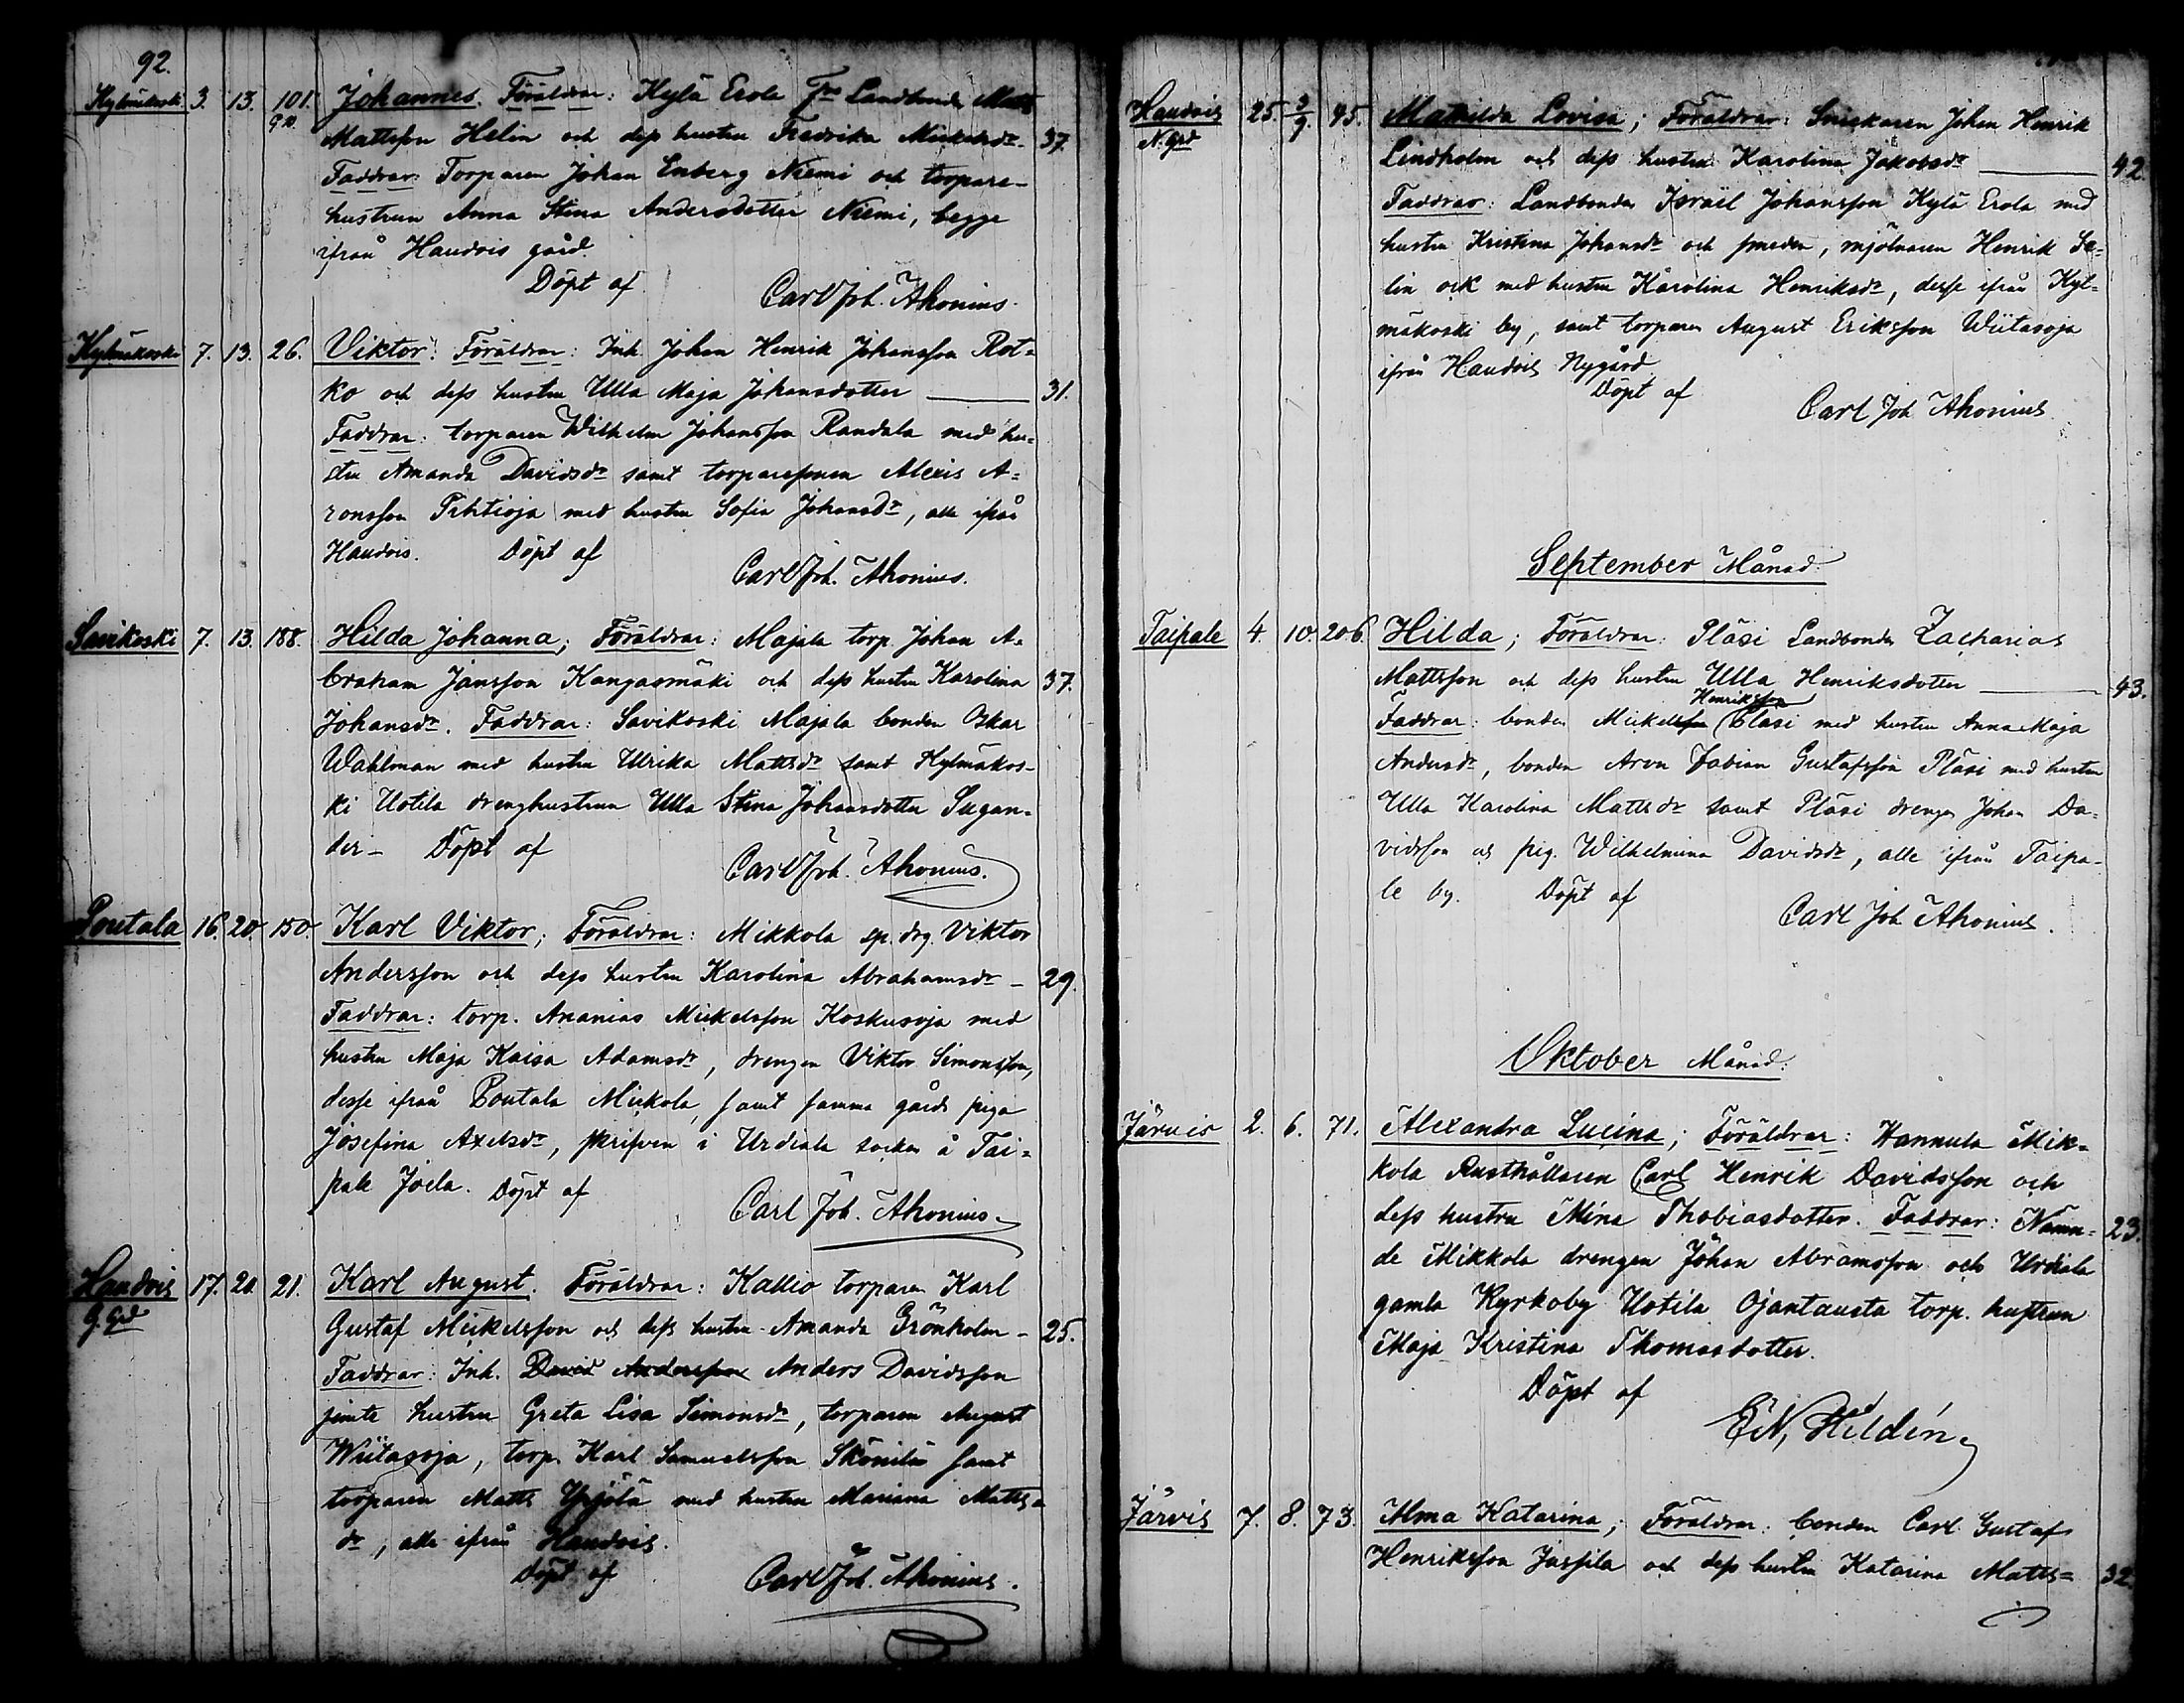 92.
Kylmäkoski 3. 13. 101. Johannes. Föräldrar: Kylä Erola Landbonden Matts
Mattsson Helin och dess hustru Fredrika Mickelsdr 37.
Faddrar: Torparen Johan Enberg Niemi och torpare-
hustrun Anna Stina Andersdotter Niemi, begge
ifrån Haudois gård.
Döpt af
Carl Joh. Ahonius.
Kylmäkoski 7. 13. 26. Viktor: Föräldrar: Inh. Johan Henrik Johansson Rot-
ko och dess hustru Ulla Maja Johansdotter 31.
Faddrar: torparen Wilhelm Johansson Randala med hu-
stru Amanda Davidsdr samt torparesonen Alexis A-
ronsson med hustru Sofia Johansdr, alla ifrån
Haudois. Döpt af
Carl Joh. Ahonius.
Savikoski 7. 13. 188. Hilda Johanna; Föräldrar: Majala torp. Johan A-
braham Jansson Kangasmäki och dess hustru Karolina 37.
Johansdr. Faddrar: Savikoski Majala bonden Oskar
Wahlman med hustru Ulrika Mattsdr samt Kylmäkos-
ki Uotila drenghustrun Ulla Stina Johansdotter Sugan-
der – Döpt af
Carl Joh. Ahonius.
Poutala 16. 20. 150. Karl Viktor; Föräldrar: Mikkola sp. drg. Viktor
Andersson och dess hustru Karolina Abrahamsdr – 29.
Faddrar: torp. Ananias Mickelsson Koskusoja med
hustru Maja Kaisa Adamsdr, drengen Viktor Simonsson,
desse ifrån Poutala Mickola, samt samma gårds piga
Josefina Axelsdr, skrifven i Urdiala socken å Tai-
pale Joela. Döpt af
Carl Joh. Ahonius
Haudois 17. 20. 21. Karl August. Föräldrar: Kallio torparen Karl
G. Gd
Gustaf Mickelsson och dess hustru Amanda Grönholm – 25.
Faddrar: Inh. David Andersson Anders Davidsson
jemte hustru Greta Lisa Simonsdr, torparen August
Wiitasoja, torp. Karl Samuelsson Skönilä samt
torparen Matts Yrjölä med hustru Mariana Matts-
dr, alla ifrån Haudois.
Döpt af
Carl Joh. Ahonius.
Haudois 25. 3/9. 95. Mathilda Lovisa; Föräldrar: Snickaren Johan Henrik
N. Grd
Lindholm och dess hustru Karolina Jakobsdr 42.
Faddrar: Landbonden Israël Johansson Kylä Erola med
hustru Kristina Johansdr och smeden, mjölnaren Henrik Se-
lin ock med hustru Karolina Henriksdr, desse ifrån Kyl-
mäkoski by, samt torparen August Eriksson Wiitasoja
ifrån Haudois Nygård
Döpt af
Carl Joh Ahonius
September Månad.
Taipale 4. 10. 206. Hilda; Föräldrar: Pläsi Landbonden Zacharias
Mattsson och dess hustru Ulla Henriksdotter 43.
Henriksson
Faddrar: bonden Mickelsson Pläsi med hustru Anna Maja
Andersdr, bonden Arvn Fabian Gustafsson Pläsi med hustru
Ulla Karolina Mattsdr samt Pläsi drengen Johan Da-
vidsson och pig. Wilhelmina Davidsdr, alle ifrån Taipa-
le by. Döpt af
Carl Joh Ahonius.
Oktober Månad.
Järvis 2. 6. 71. Alexandra Lucina; Föräldrar: Hannula Mik-
kola Rusthållaren Carl Henrik Davidsson och
dess hustru Mina Thobiasdotter. Faddrar: Namn- 23.
de Mikkola drengen Johan Abramsson och Urdiala
gamla Kyrkoby Uotila Ojantausta torp. hustrun
Maja Kristina Thomasdotter.
Döpt af
Hildén
Järvis 7. 8. 73. Alma Katarina; Föräldrar: bonden Carl Gustaf
Henriksson Jussila och dess hustru Katarina Matts- 32.